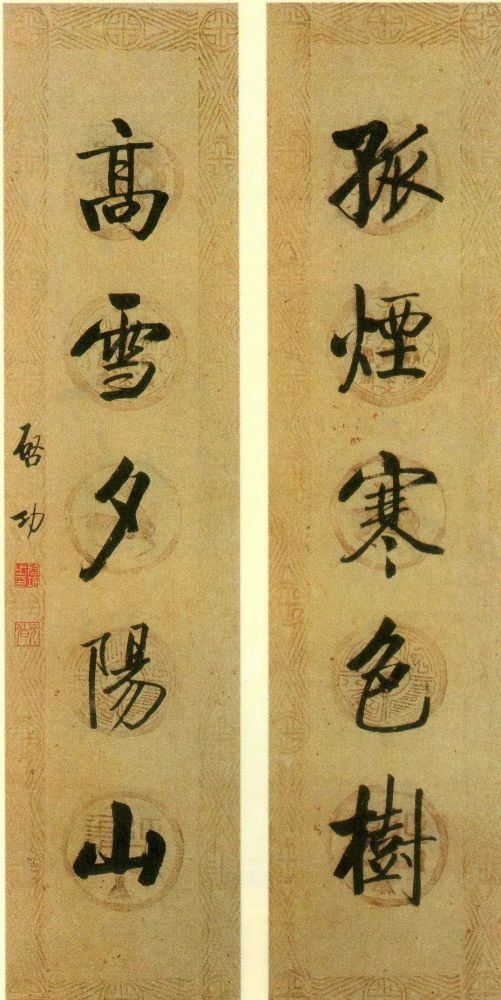 孤煙寒色樹
高雪夕陽山
啓功